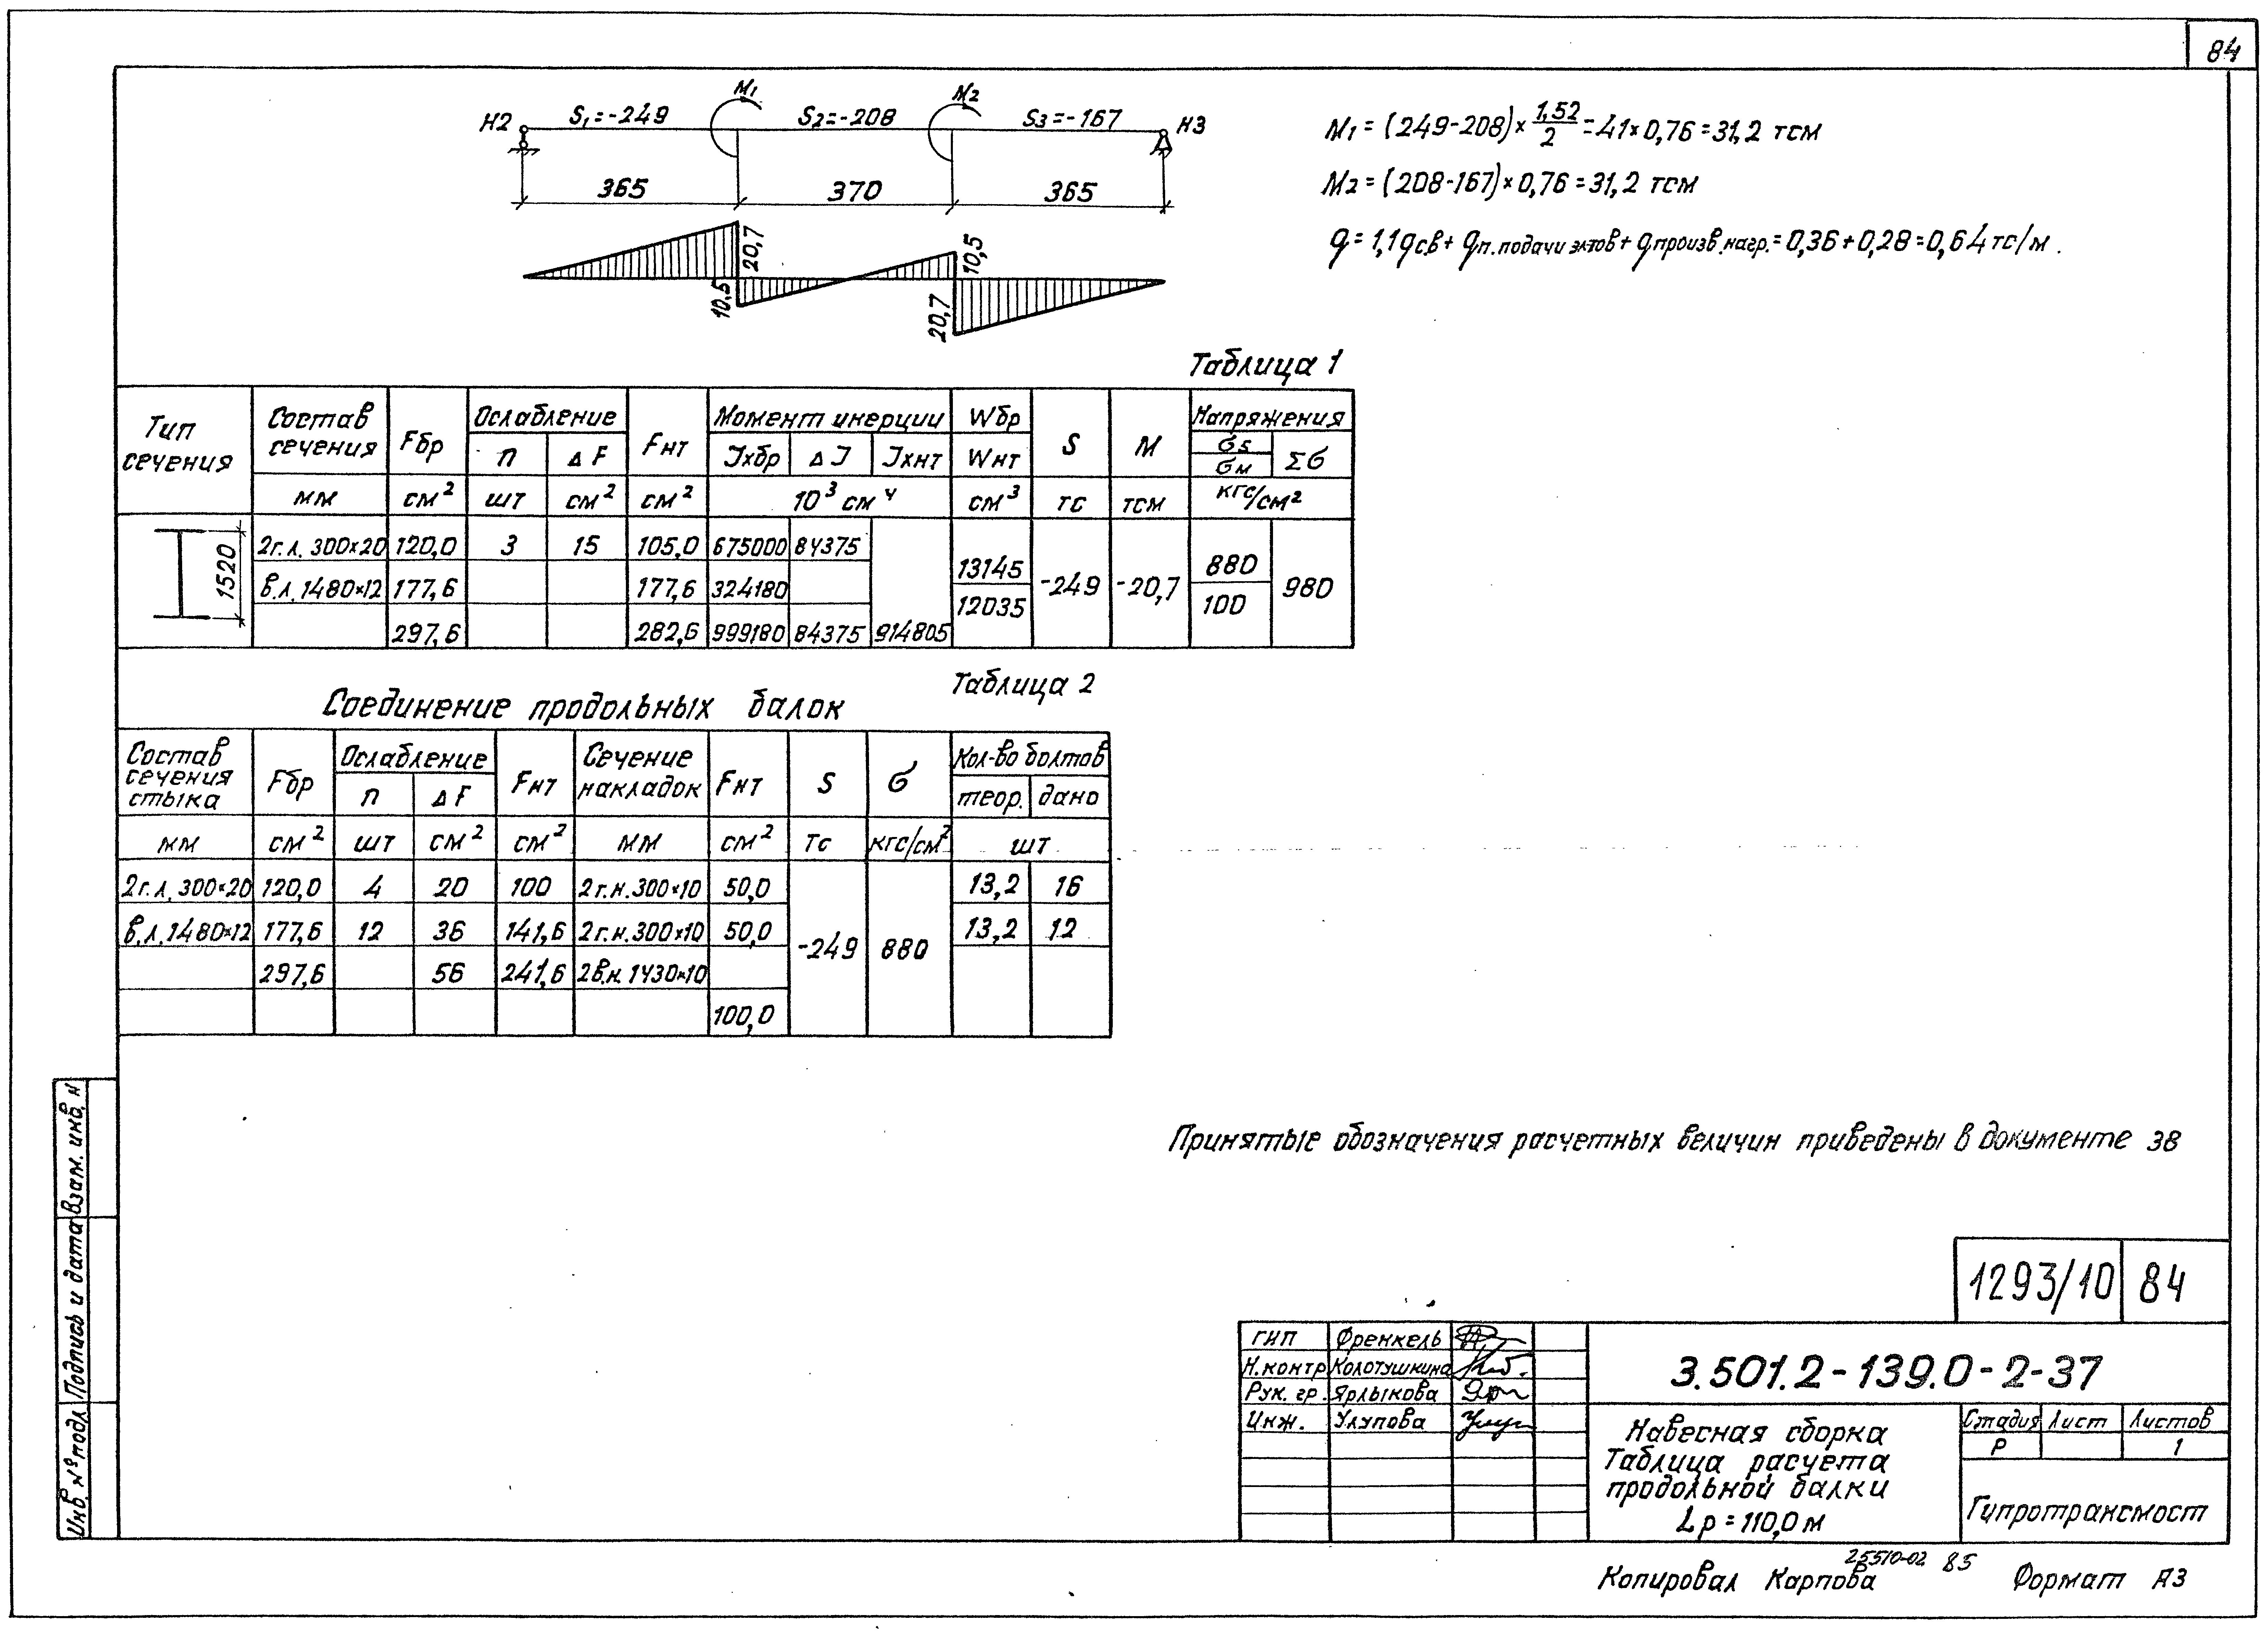 84
H2 S₁=-249 M₁ S₂=-208 M₂ S₃=-167 H3
365 370 365
20,7 10,5 10,5 20,7
M₁ = (249-208) × 1,52/2 = 41×0,76 = 31,2 тсм
M₂ = (208-167) × 0,76 = 31,2 тсм
q = 1,1qсв + qп.подачи эл-тов + qпроизв.нагр. = 0,36 + 0,28 = 0,64 тс/м.
Таблица 1
Тип сечения | Состав сечения | Fбр | Ослабление | Fнт | Момент инерции | Wбр | S | M | Напряжения
п | ΔF | Jхбр | ΔJ | Jхнт | Wнт | σs | σм | Σσ
мм | см² | шт | см² | см² | 10³ см⁴ | см³ | тс | тсм | кгс/см²
1520
2г.л. 300×20 | 120,0 | 3 | 15 | 105,0 | 675000 | 84375
в.л. 1480×12 | 177,6 | 177,6 | 324180 | 13145 | 12035 | -249 | -20,7 | 880 | 100 | 980
297,6 | 282,6 | 999180 | 84375 | 914805
Таблица 2
Соединение продольных балок
Состав сечения стыка | Fбр | Ослабление | Fнт | Сечение накладок | Fнт | S | σ | Кол-во болтов
п | ΔF | теор. | дано
мм | см² | шт | см² | см² | мм | см² | Тс | кгс/см² | шт
2г.л. 300×20 | 120,0 | 4 | 20 | 100 | 2г.н. 300×10 | 50,0 | 13,2 | 16
в.л. 1480×12 | 177,6 | 12 | 36 | 141,6 | 2г.н. 300×10 | 50,0 | -249 | 880 | 13,2 | 12
297,6 | 56 | 241,6 | 2в.н. 1430×10
100,0
Принятые обозначения расчетных величин приведены в документе 38
1293/10 84
ГИП Френкель
Н.контр Колотушкина
Рук. гр. Ярлыкова
Инж. Улупова
3.501.2-139.0-2-37
Навесная сборка
Таблица расчета
продольной балки
Lр = 110,0 м
Стадия Лист Листов
Р 1
Гипротрансмост
Инв. № подл. Подпись и дата Взам. инв. н
25510-02 85
Копировал Карпова Формат А3